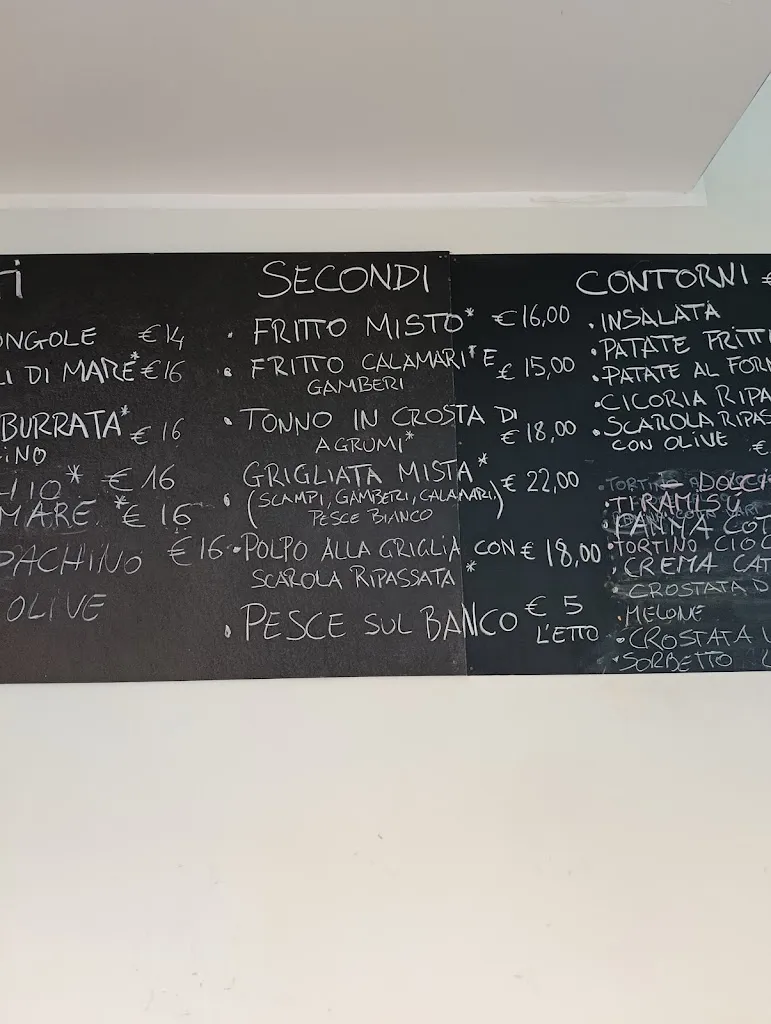 ONGOLE €14
LI DI MARE* €16
BURRATA* €16
INO
* €16
MARE *€16
PACHINO €16
OLIVE
SECONDI
• FRITTO MISTO* €16,00
• FRITTO CALAMARI* E €15,00
GAMBERI
• TONNO IN CROSTA DI
AGRUMI* €18,00
• GRIGLIATA MISTA* €22,00
(SCAMPI, GAMBERI, CALAMARI,
PESCE BIANCO)
• POLPO ALLA GRIGLIA CON €18,00
SCAROLA RIPASSATA *
• PESCE SUL BANCO €5
L'ETTO
CONTORNI €
• INSALATA
• PATATE FRITT
• PATATE AL FOR
• CICORIA RIPA
• SCAROLA RIPAS
CON OLIVE €
DOLCI
• TIRAMISÚ
• PANNA COT
• TORTINO CIOC
• CREMA CAT
• CROSTATA D
MELONE
• CROSTATA
• SORBETTO